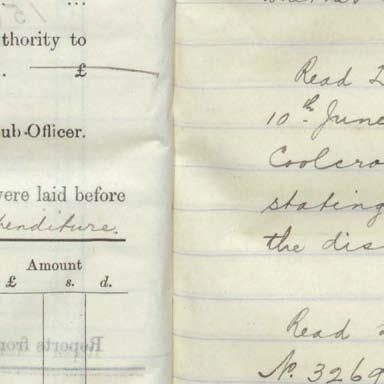 thority to
£
ub-Officer.
were laid before
penditure.
Amount
£ s. d.
Reports from
Read
10th June
Coolcro
stating
the dis
Read
No. 3269